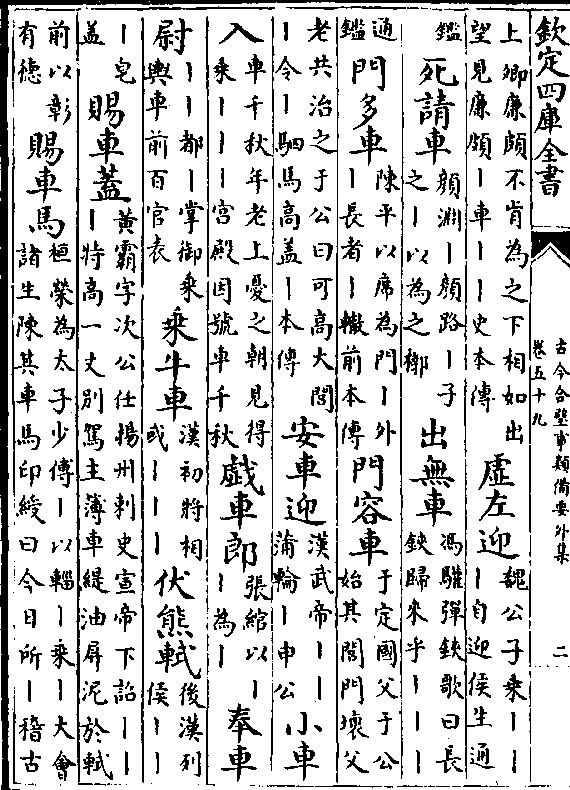 欽定四庫全書
古今合璧事類備要外集
卷五十九
二
上卿廉頗不肯為之下相如出
望見廉頗｜車｜｜史本傳
虛左迎
魏公子乘｜｜
｜自迎侯生通
鑑
死請車
顔淵｜顔路｜子
之｜以為之槨
出無車
馮驩彈鋏歌曰長
鋏歸來乎｜｜｜
通
鑑
門多車
陳平以席為門｜外
｜長者｜轍前本傳
門容車
于定國父于公
始其閭門壞父
老共治之于公曰可高大閭
｜令｜駟馬高盖｜本傳
安車迎
漢武帝｜｜
蒲輪｜申公
小車
入
車千秋年老上憂之朝見得
乘｜｜｜宫殿因號車千秋
戯車郎
張綰以｜
｜為｜
奉車
尉
｜｜都｜掌御乘
輿車前百官表
乘牛車
漢初將相
或｜｜｜
伏熊軾
後漢列
侯｜｜
｜皂
盖
賜車蓋
黄霸字次公仕揚州刺史宣帝下詔｜｜
｜特高一丈别駕主簿車緹油屏泥於軾
前以彰
有徳
賜車馬
桓榮為太子少傅｜以輜｜乘｜大會
諸生陳其車馬印綬曰今日所｜稽古